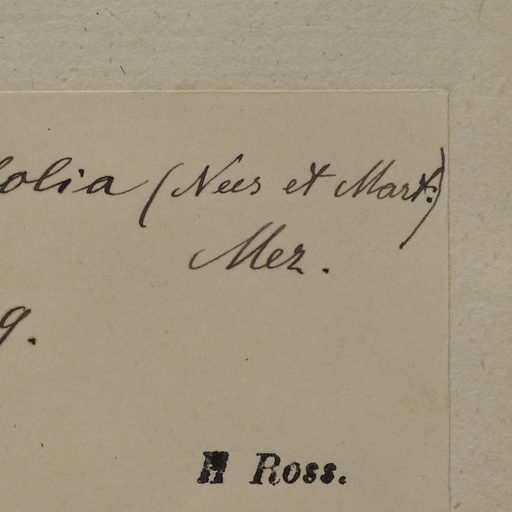 folia (Nees et Mart.)
Mez.
9.
H Ross.